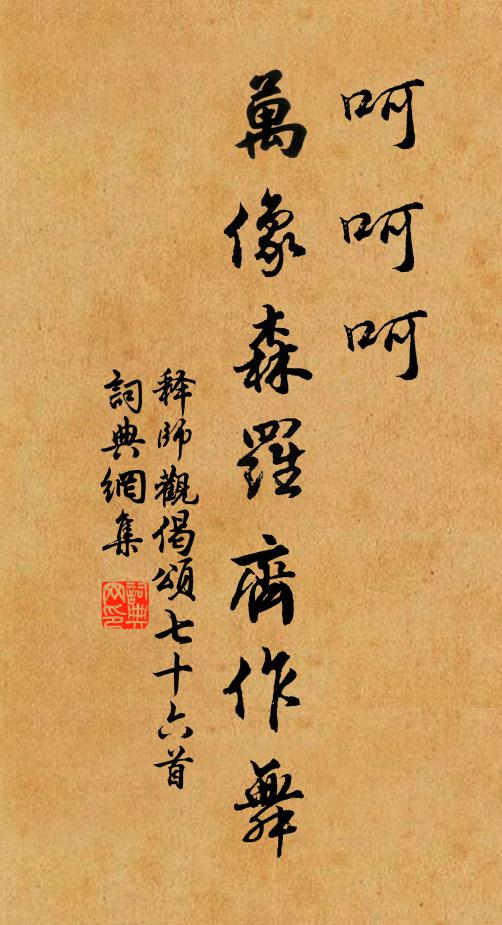 呵呵呵
萬像森羅齊作舞
释師觀偈頌七十六首
詞典網集
詞典
网印